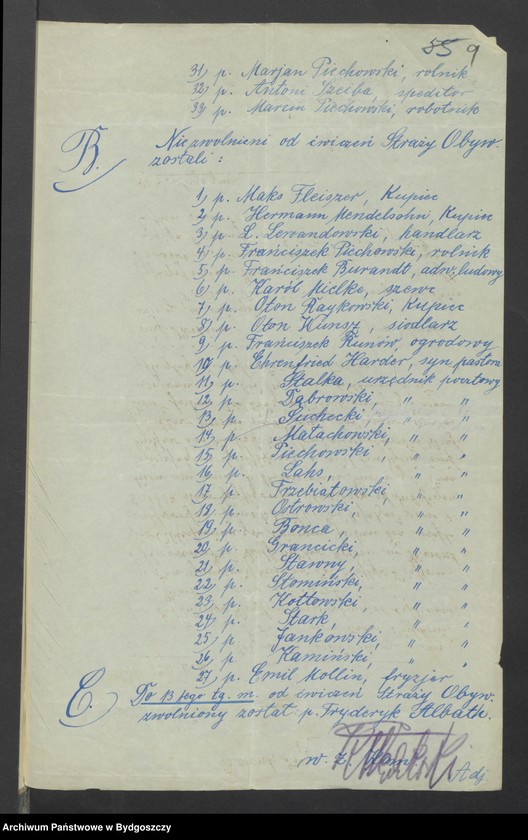 55 9
31, p. Marjan Piechowski, rolnik
32, p. Antoni Szeiba, speditor
33, p. Marcin Piechowski, robotnik
B. Niezwolnieni od ćwiczeń Straży Obyw.
zostali:
1, p. Maks Fleiszer, Kupiec
2, p. Hermann Mendelsohn, Kupiec
3, p. L. Lewandowski, handlarz
4, p. Franciszek Piechowski, rolnik
5, p. Franciszek Burandt, adw. ludowy
6, p. Karól Mielke, szewc
7, p. Oton Raykowski, Kupiec
8, p. Oton Kunsz, siodlarz
9, p. Franciszek Kunów, ogrodowy
10, p. Ehrenfried Harder, syn pastora
11, p. Skalka, urzędnik pocztowy
12, p. Dąbrowski, " "
13, p. Suchecki, " "
14, p. Małachowski, " "
15, p. Piechowski, " "
16, p. Lahs, " "
17, p. Trzebiatowski, " "
18, p. Ostrowski, " "
19, p. Bonca, " "
20, p. Grancicki, " "
21, p. Stawny, " "
22, p. Słomiński, " "
23, p. Kottowski, " "
24, p. Stark, " "
25, p. Jankowski, " "
26, p. Kamiński, " "
27, p. Emil Mollin, fryzjer
C. Do 13 tego tg. m. od ćwiczeń Straży Obyw.
zwolniony został p. Fryderyk Albath.
w. z.
Adj
Archiwum Państwowe w Bydgoszczy